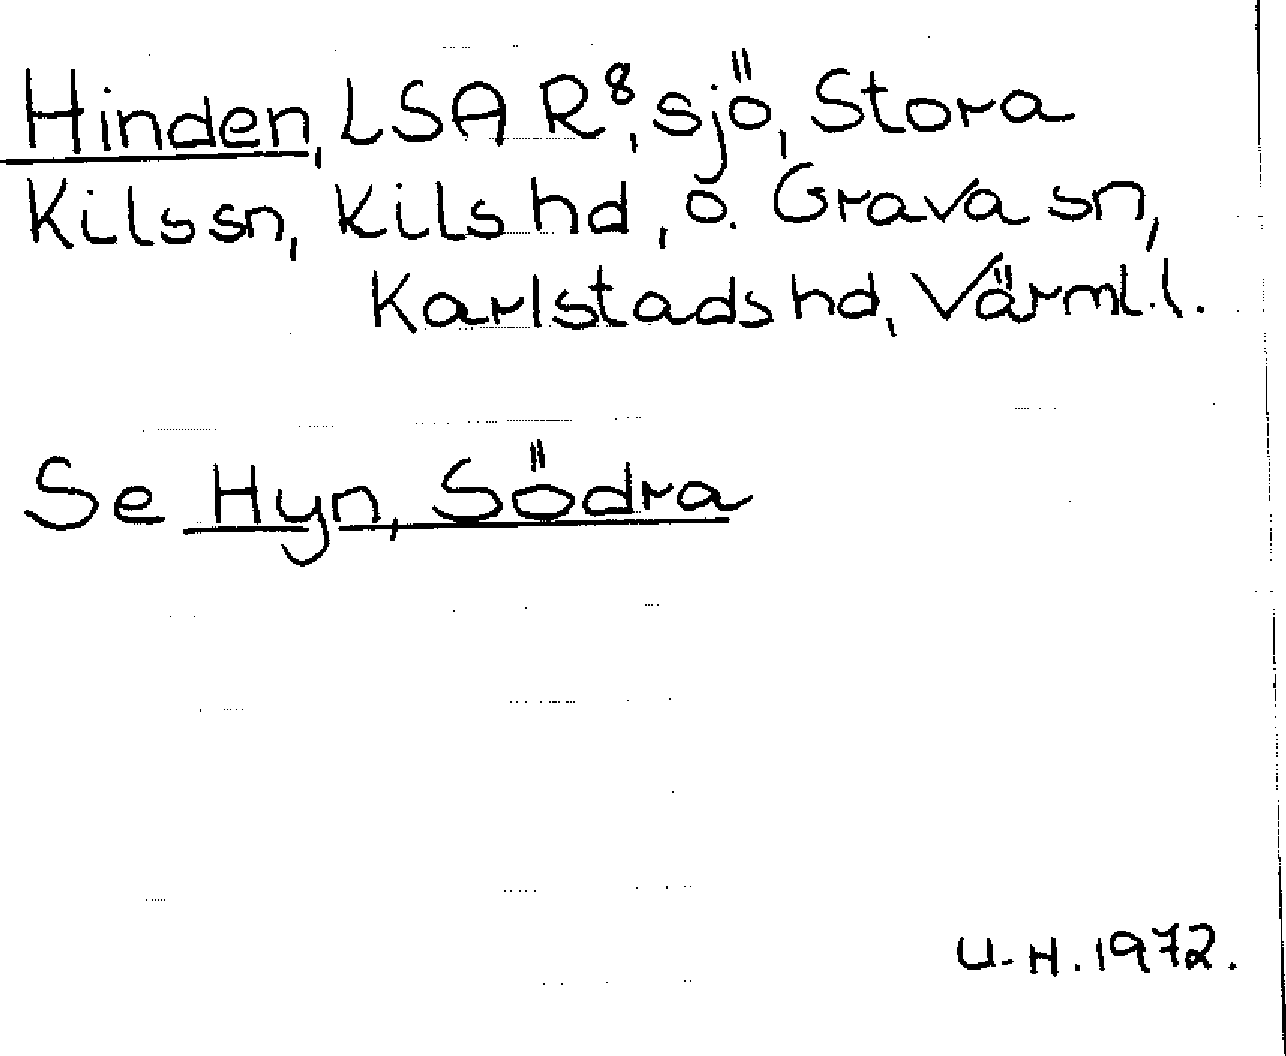 Hinden, LSA R⁸, sjö, Stora
Kils sn, Kils hd, o. Grava sn,
Karlstads hd, Värml. l.
Se Hyn, Södra
U-H. 1972.